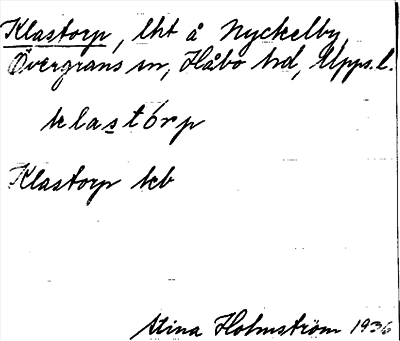 Klastorp, lht å Nyckelby,
Övergrans sn, Håbo hd, Upps. l.
klastórp
Klastorp kb
Stina Holmström 1936